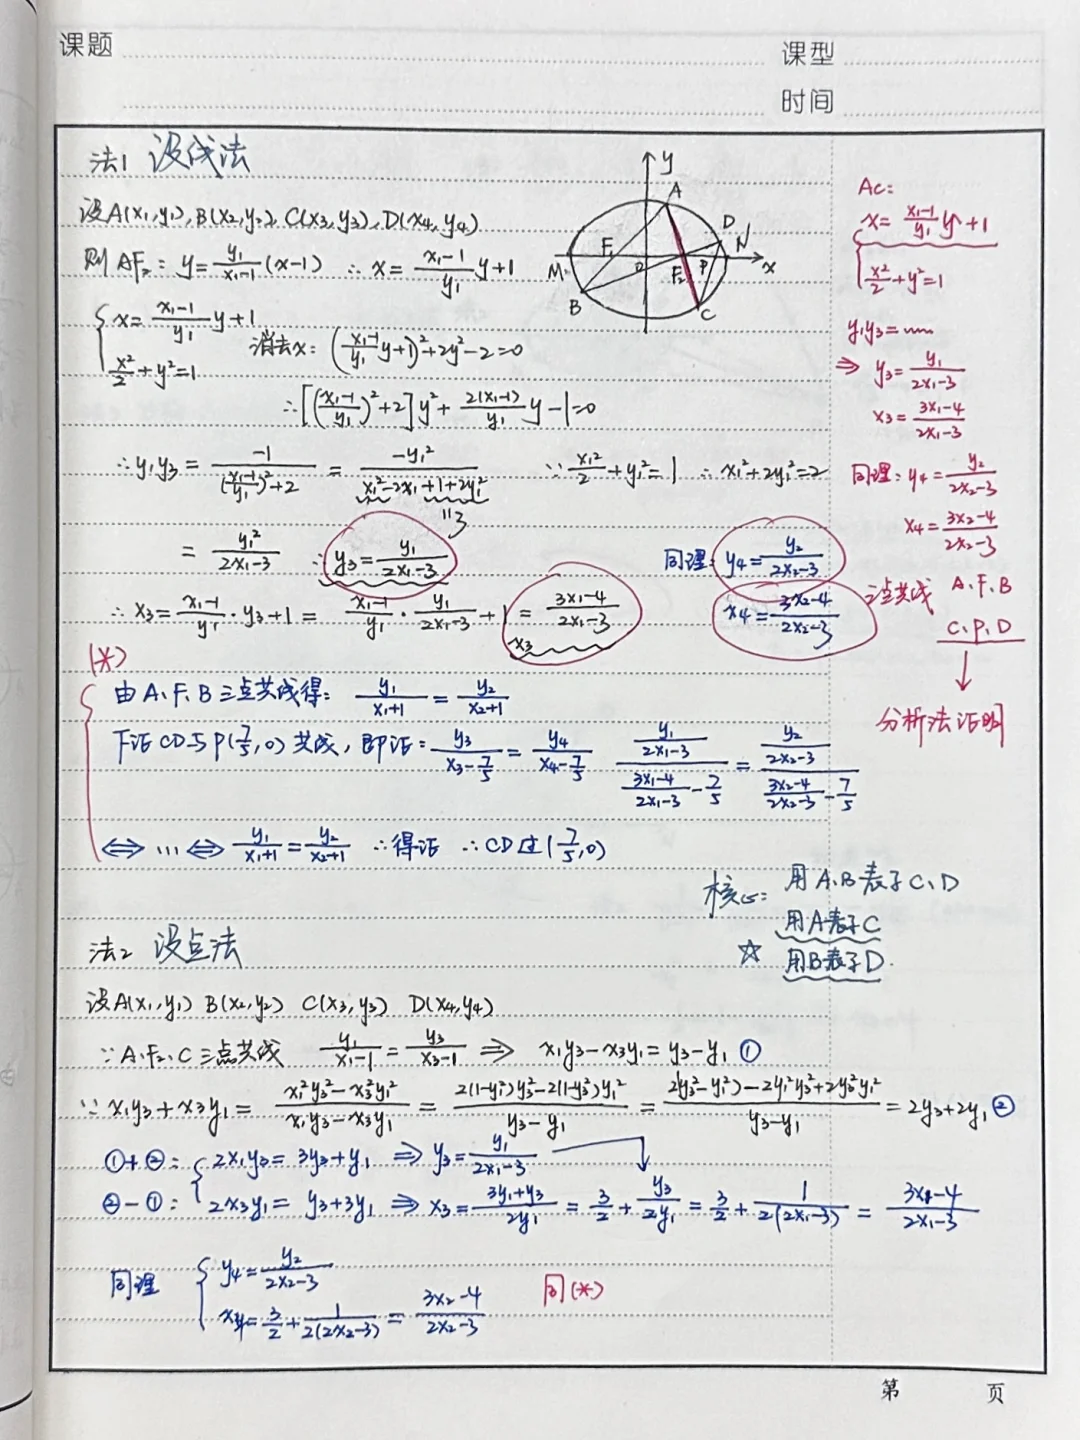 课题
课型
时间
法1 设线法
设A(x₁,y₁), B(x₂,y₂), C(x₃,y₃), D(x₄,y₄)
则 AF₂: y=\frac{y₁}{x₁-1}(x-1) ∴ x=\frac{x₁-1}{y₁}y+1
{ x=\frac{x₁-1}{y₁}y+1
\frac{x²}{2}+y²=1
消去x: (\frac{x₁-1}{y₁}y+1)²+2y²-2=0
∴[(\frac{x₁-1}{y₁})²+2]y²+\frac{2(x₁-1)}{y₁}y-1=0
∴y₁y₃=\frac{-1}{(\frac{x₁-1}{y₁})²+2}=\frac{-y₁²}{x₁²-2x₁+1+2y₁²} ∵\frac{x₁²}{2}+y₁²=1 ∴x₁²+2y₁²=2
"3
=\frac{y₁²}{2x₁-3} ∴y₃=\frac{y₁}{2x₁-3} 同理: y₄=\frac{y₂}{2x₂-3}
∴x₃=\frac{x₁-1}{y₁}·y₃+1=\frac{x₁-1}{y₁}·\frac{y₁}{2x₁-3}+1=\frac{3x₁-4}{2x₁-3} x₄=\frac{3x₂-4}{2x₂-3}
x₃
(*)
由A、F、B三点共线得: \frac{y₁}{x₁+1}=\frac{y₂}{x₂+1}
下证CD与P(\frac{7}{5},0)共线, 即证: \frac{y₃}{x₃-\frac{7}{5}}=\frac{y₄}{x₄-\frac{7}{5}} \frac{\frac{y₁}{2x₁-3}}{\frac{3x₁-4}{2x₁-3}-\frac{7}{5}}=\frac{\frac{y₂}{2x₂-3}}{\frac{3x₂-4}{2x₂-3}-\frac{7}{5}}
⇔ ... ⇔ \frac{y₁}{x₁+1}=\frac{y₂}{x₂+1} ∴得证 ∴CD过(\frac{7}{5},0)
核心: 用A、B表示C、D
用A表示C
☆ 用B表示D.
y
A
D
N
F₁
M
O
F₂
P
x
B
C
AC:
{ x=\frac{x₁-1}{y₁}y+1
\frac{x²}{2}+y²=1
y₁y₃=......
⇒ y₃=\frac{y₁}{2x₁-3}
x₃=\frac{3x₁-4}{2x₁-3}
同理: y₄=\frac{y₂}{2x₂-3}
x₄=\frac{3x₂-4}{2x₂-3}
三点共线 A、F、B
C、P、D
↓
分析法证明
法2 设点法
设A(x₁,y₁) B(x₂,y₂) C(x₃,y₃) D(x₄,y₄)
∵A、F₂、C三点共线 \frac{y₁}{x₁-1}=\frac{y₃}{x₃-1} ⇒ x₁y₃-x₃y₁=y₃-y₁ ①
∵x₁y₃+x₃y₁=\frac{x₁²y₃²-x₃²y₁²}{x₁y₃-x₃y₁}=\frac{2(1-y₁²)y₃²-2(1-y₃²)y₁²}{y₃-y₁}=\frac{2(y₃²-y₁²)-2y₁²y₃²+2y₃²y₁²}{y₃-y₁}=2y₃+2y₁ ②
①+②: { 2x₁y₃=3y₃+y₁ ⇒ y₃=\frac{y₁}{2x₁-3}
②-①: 2x₃y₁=y₃+3y₁ ⇒ x₃=\frac{3y₁+y₃}{2y₁}=\frac{3}{2}+\frac{y₃}{2y₁}=\frac{3}{2}+\frac{1}{2(2x₁-3)}=\frac{3x₁-4}{2x₁-3}
同理 { y₄=\frac{y₂}{2x₂-3}
x₄=\frac{3}{2}+\frac{1}{2(2x₂-3)}=\frac{3x₂-4}{2x₂-3} 同(*)
第 页